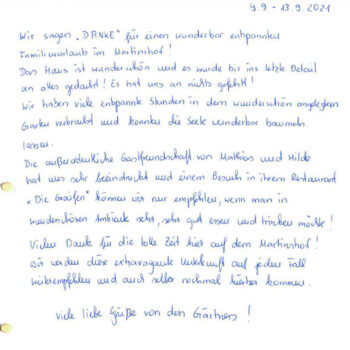 9.9. - 13.9.2021
Wir sagen "DANKE" für einen wunderbar entspannten
Familienurlaub im Martinshof!
Das Haus ist wunderschön und es wurde bis ins letzte Detail
an alles gedacht! Es hat uns an nichts gefehlt!
Wir haben viele entspannte Stunden in dem wunderschön angelegten
Garten verbracht und konnten die Seele wunderbar baumeln
lassen.
Die außerordentliche Gastfreundschaft von Mathias und Hilde
hat uns sehr beeindruckt und einem Besuch in ihrem Restaurant
"Die Gräfin" können wir nur empfehlen, wenn man in
wunderschönen Ambiente sehr, sehr gut essen und trinken möchte!
Vielen Dank für die tolle Zeit hier auf dem Martinshof!
Wir werden diese extravagante Unterkunft auf jeden Fall
weiterempfehlen und auch selber nochmal hierher kommen.
Viele liebe Grüße von den Gärtners!